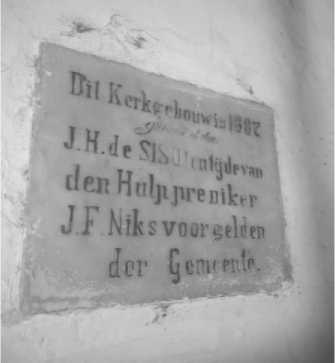 Dit Kerkgebouw is 1882
J.H. de S ten tijde van
den Hulppreniker
J.F. Niks voor gelden
der Gemeente.